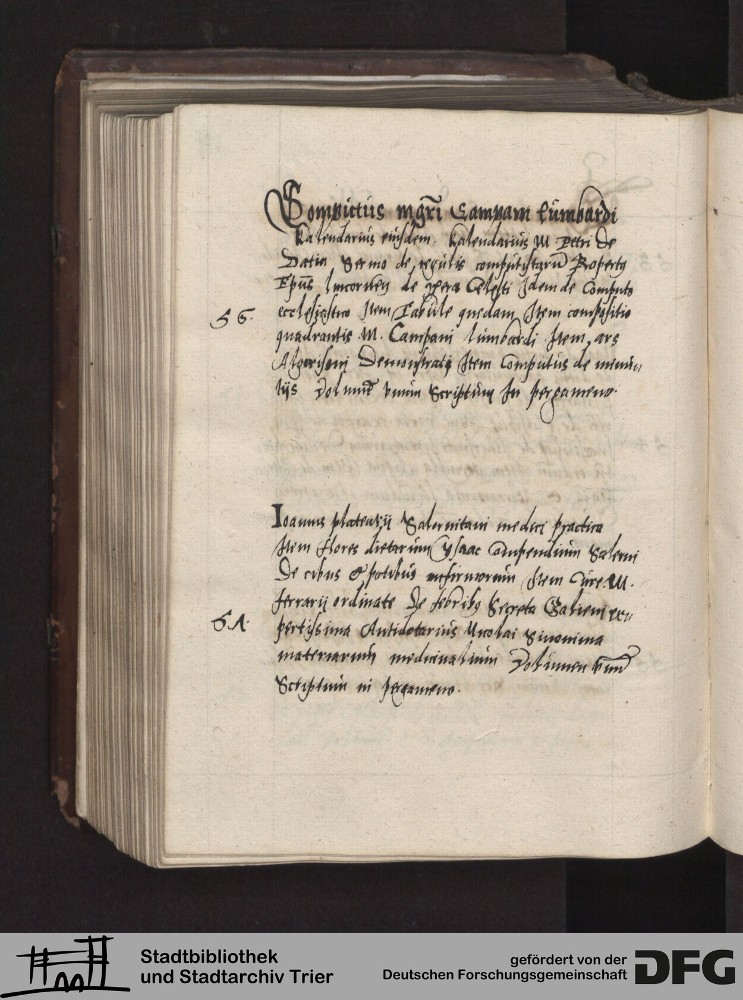 Compuctus mgri Campani lumbardi
Kalendarius eiusdem. Kalendarius M. Petri de
Datia Sermo de regulis computistarum Roberti
Epus lincornen de spera Celesti Idem de Computo
ecclesiastico Item Tabule quedam Item compositio
56.
quadrantis M. Campani lumbardi Item ars
Algorismi Demonstratio Item Computus de minu,,
tijs Volume vnum Scriptum In pergameno.
Ioannis platearij Salernitani medici practica
Item flores dietarum ysaac Compendium Salerni
De cibus & potibus infirmorum Item Cure M.
ferrarij ordinate De febribus Secreta Galieni ex,,
pertissima Antidotarius Nicolai Sinonima
materiarum medicinalium Volumen vnum
Scriptum in pergameno.
Stadtbibliothek
und Stadtarchiv Trier
gefördert von der
Deutschen Forschungsgemeinschaft
DFG